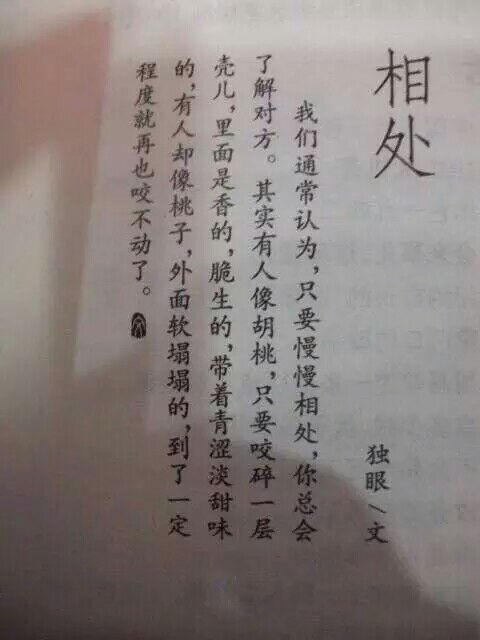 相处
独眼/文
我们通常认为，只要慢慢相处，你总会
了解对方。其实有人像胡桃，只要咬碎一层
壳儿，里面是香的，脆生的，带着青涩淡甜味
的，有人却像桃子，外面软塌塌的，到了一定
程度就再也咬不动了。